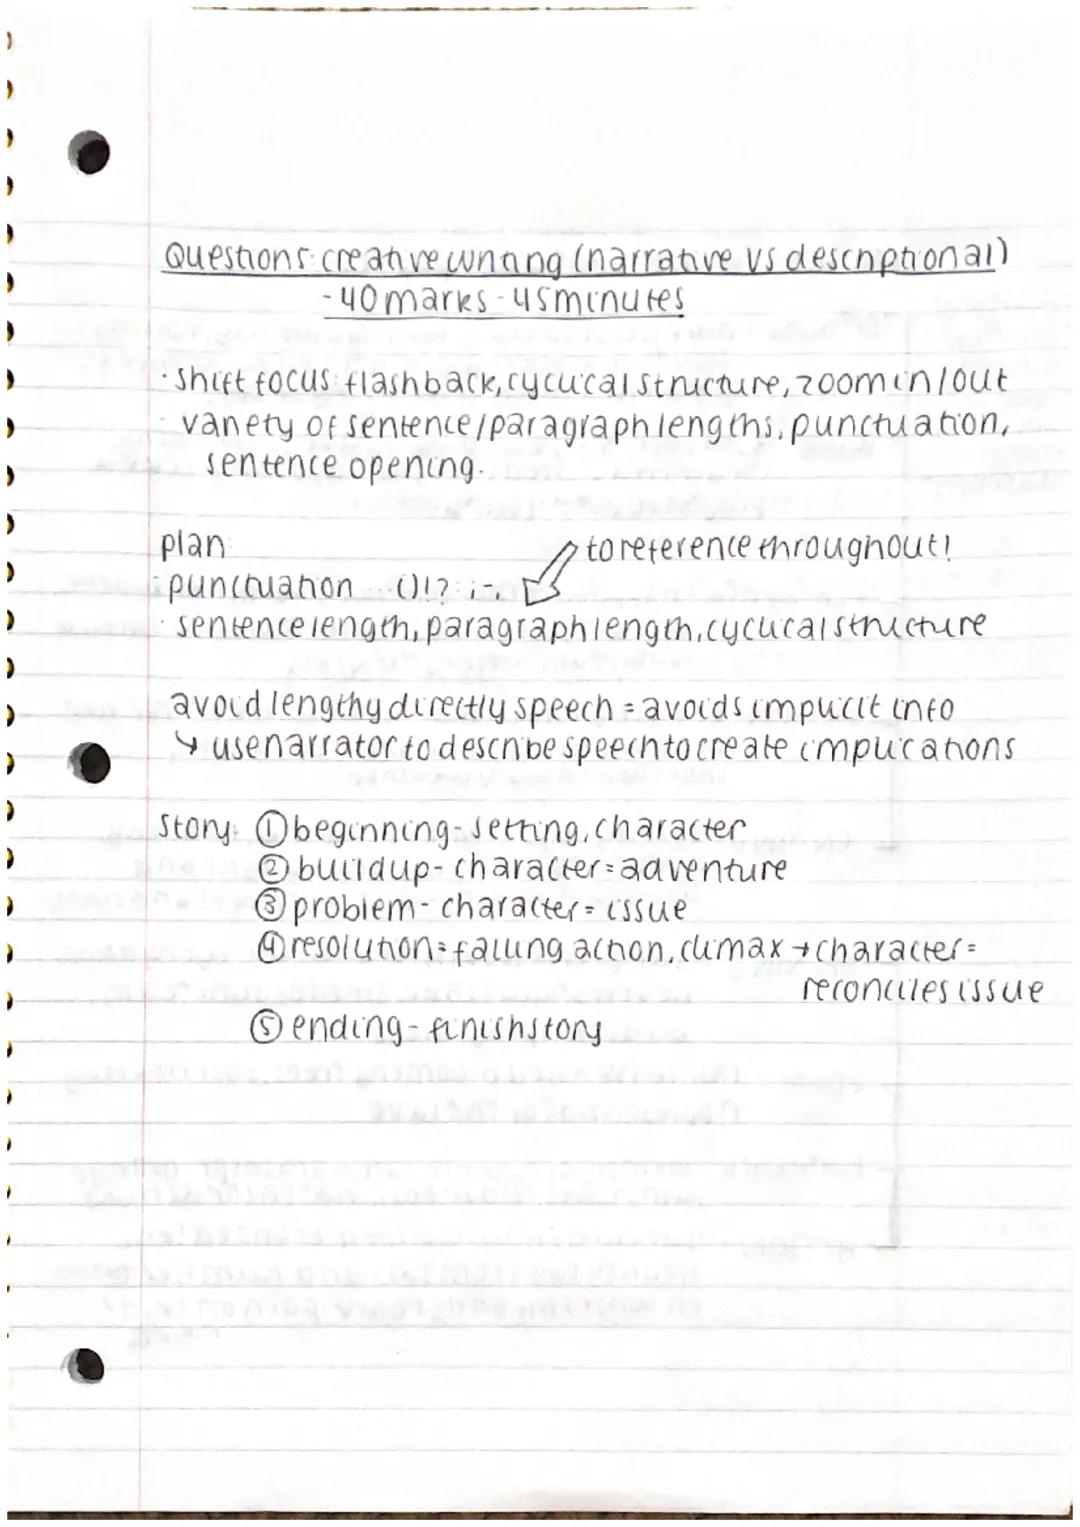 Question 5: creative writing (narrative vs descriptional)
- 40 marks - 45 minutes
· shift focus: flashback, cyclical structure, zoom in/out
- variety of sentence/paragraph lengths, punctuation,
sentence opening.
plan:
to reference throughout!
· punctuation ()!? ; -
· sentence length, paragraph length, cyclical structure
avoid lengthy directly speech = avoids implicit info
↳ use narrator to describe speech to create implications
Story: ① beginning - setting, character
② build up - character = adventure
③ problem - character = issue
④ resolution = falling action, climax → character =
reconciles issue
⑤ ending - finish story